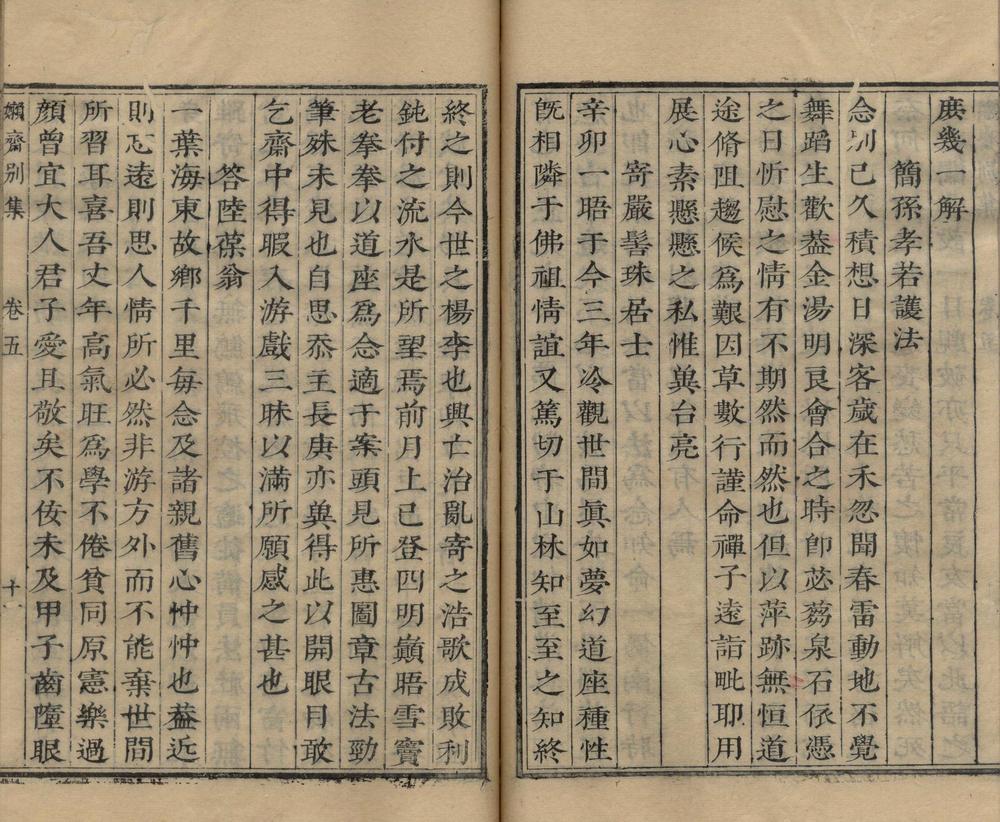 庻幾一解
簡孫孝若護法
念别已久積想日深客歲在禾忽聞春雷動地不覺
舞蹈生歡葢金湯明良會合之時卽苾蒭泉石依憑
之日忻慰之情有不期然而然也但以萍跡無恒道
途脩阻趨候爲艱因草數行謹命禪子遠詣毗耶用
展心素懸懸之私惟兾台亮
寄嚴髻珠居士
辛卯一晤于今三年冷觀世間眞如夢幻道座種性
旣相隣于佛祖情誼又篤切于山林知至至之知終
終之則今世之楊李也興亡治亂寄之浩歌成敗利
鈍付之流水是所望焉前月上已登四明巔晤雪竇
老拳拳以道座爲念適于案頭見所惠圖章古法勁
筆殊未見也自思忝主長庚亦兾得此以開眼目敢
乞齋中得暇入游戲三昧以滿所願感之甚也
答陸葆翁
一葉海東故鄉千里每念及諸親舊心忡忡也葢近
則忘遠則思人情所必然非游方外而不能棄世間
所習耳喜吾丈年高氣旺爲學不倦貧同原憲樂過
顔曾宜大人君子愛且敬矣不侫未及甲子齒墮眼
嬾齋别集
卷五
十一